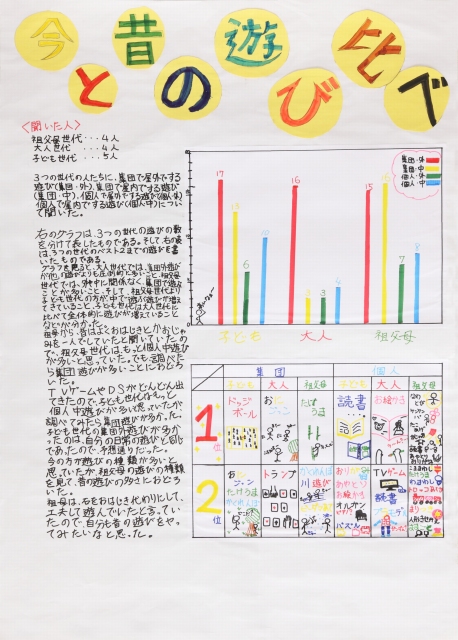 今と昔の遊び比べ
〈聞いた人〉
祖父母世代・・・4人
大人世代・・・4人
子ども世代・・・5人
3つの世代の人たちに、集団で屋外でする
遊び(集団・外)、集団で屋内でする遊び
(集団・中)、個人で屋外でする遊び(個人・外)
個人で屋内でする遊び(個人・中)につい
て聞いた。
右のグラフは、3つの世代の遊びの数
を分けて表したものである。そして、右の表
は、3つの世代のベスト2までの遊びを書
いたものである。
グラフを見ると、大人世代では、集団外遊び
が他の遊びよりも圧倒的に多いこと、祖父母
世代では、外中に関係なく、集団で遊ぶ
ことが多いこと、そして、祖父母世代より
子ども世代の方が中で遊ぶ遊びが増え
てきていること、子ども世代は大人世代に
比べて全体的に遊びが増えていること
などが分かった。
祖母から、昔はよくおはじきとかおじゃ
みを一人でしていたと聞いていたの
で、祖父母世代は、もっと個人中遊び
が多いと思っていた。でも、調べた
ら集団遊びが多いことにおどろ
いた。
TVゲームやDSがどんどん出
てきたので、子ども世代はもっと
個人中遊びが多いと思っていたが、
調べてみたら集団遊びが多かった。
子ども世代の集団外遊びが多か
ったのは、自分の日常の遊びと同じ
であったので、予想通りだった。
今の方が遊びの種類が多いと
思っていたが、祖父母の遊びの種類
を見て、昔の遊びの多さにおどろ
いた。
祖母は、石をおはじき代わりにして、
工夫して遊んでいたと言ってい
たので、自分も昔の遊びをやっ
てみたいなと思った。
集団・外
集団・中
個人・外
個人・中
17
13
6
10
16
3
3
4
15
16
7
8
子ども
大人
祖父母
集団
個人
子ども
大人
祖父母
子ども
大人
祖父母
1位
ドッジボール
読書
お絵かき
2位
トランプ
川遊び
おりがみ
あやとり
お絵かき
オルガン
パズル
TVゲーム
読書